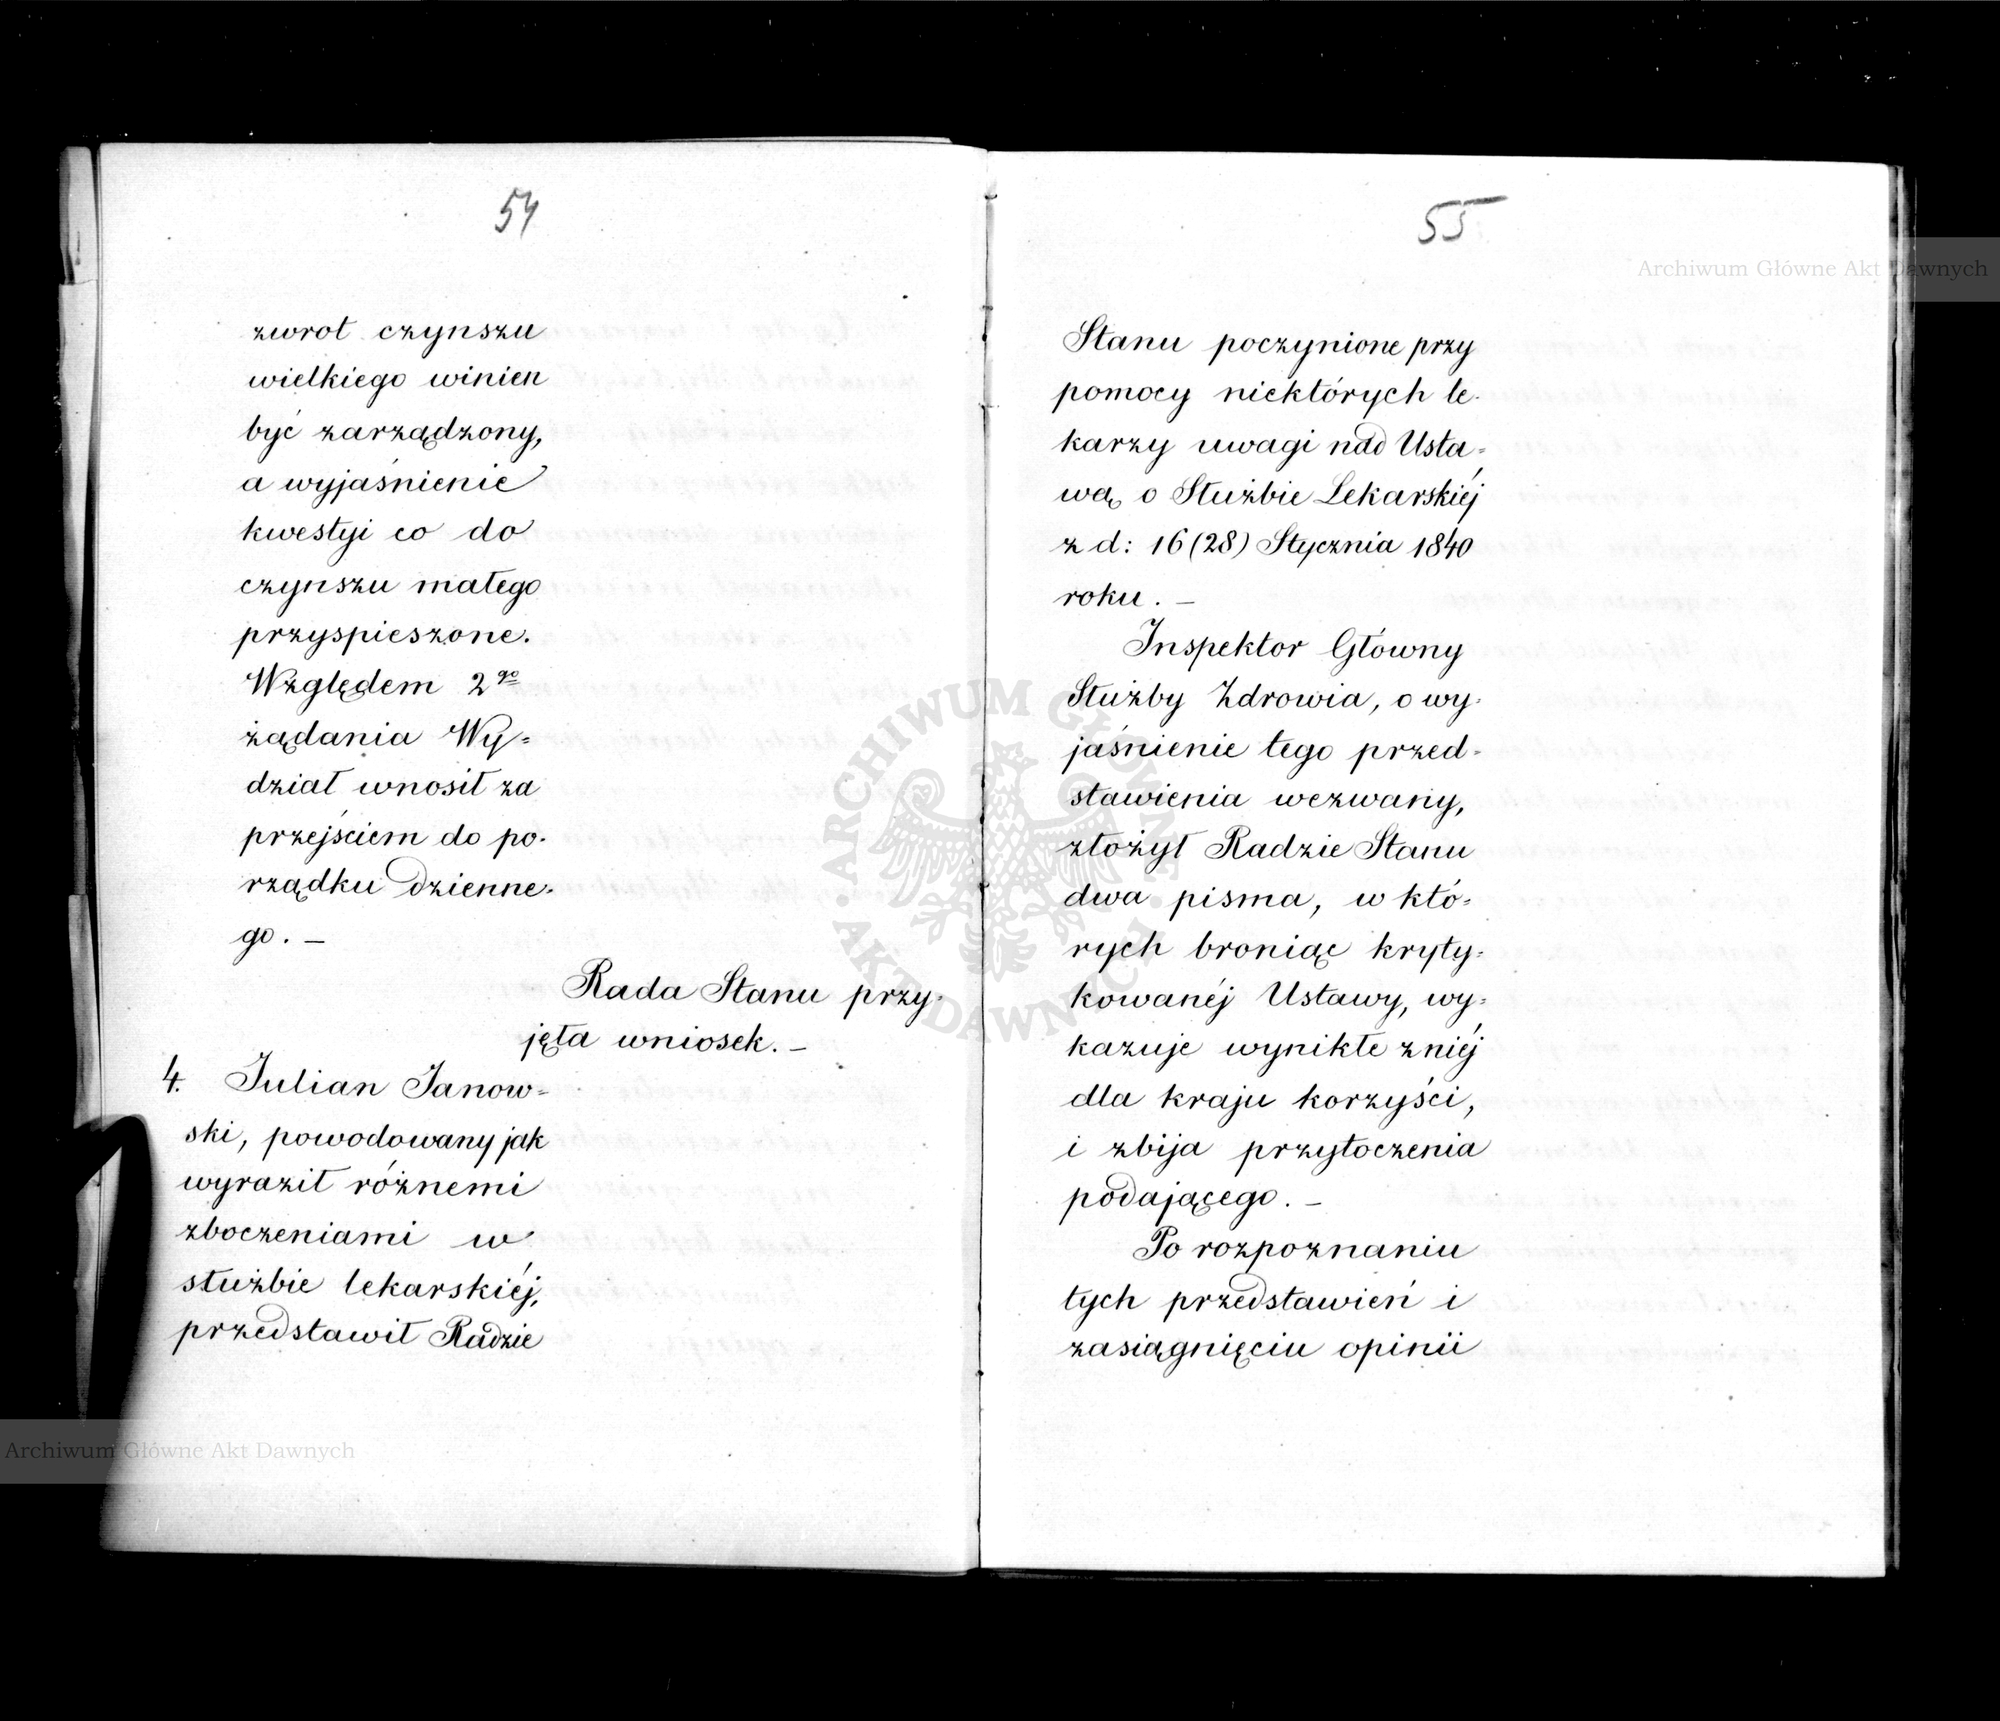 54
zwrot czynszu
wielkiego winien
być zarządzony,
a wyjaśnienie
kwestyi co do
czynszu małego
przyspieszone.
Względem 2go
żądania Wy=
dział wnosił za
przejściem do po-
rządku dzienne-
go. —
Rada Stanu przy-
jęła wniosek. —
4. Julian Janow=
ski, powodowany jak
wyraził różnemi
zboczeniami w
służbie lekarskiéj,
przedstawił Radzie
55
Stanu poczynione przy
pomocy niektórych le-
karzy uwagi nad Usta=
wą o Służbie Lekarskiéj
z d: 16 (28) Stycznia 1840
roku. —
Inspektor Główny
Służby Zdrowia, o wy-
jaśnienie tego przed-
stawienia wezwany,
złożył Radzie Stanu
dwa pisma, w któ-
rych broniąc kryty-
kowanéj Ustawy, wy-
kazuje wynikłe z niéj
dla kraju korzyści,
i zbija przytoczenia
podającego. —
Po rozpoznaniu
tych przedstawień i
zasiągnięciu opinii
Archiwum Główne Akt Dawnych
ARCHIWUM GŁÓWNE AKT DAWNYCH
Archiwum Główne Akt Dawnych